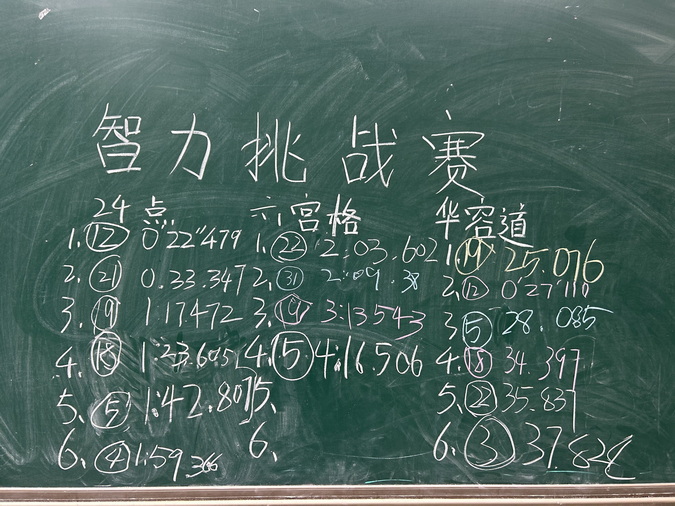 智力挑战赛
24点 六宫格 华容道
1. ⑫ 0'22"479 1. ㉒ 2:03.602 1. ⑲ 25.076
2. ㉑ 0.33.347 2. ㉛ 2:09.38 2. ⑫ 0'27"110
3. ⑲ 1:17.472 3. ⑲ 3:13543 3. ⑤ 28.085
4. ⑱ 1:23.605 4. ⑤ 4:16.506 4. ⑱ 34.397
5. ⑤ 1:42.807 5. 5. ㉒ 35.837
6. ④ 1:59.366 6. 6. ③ 37.828